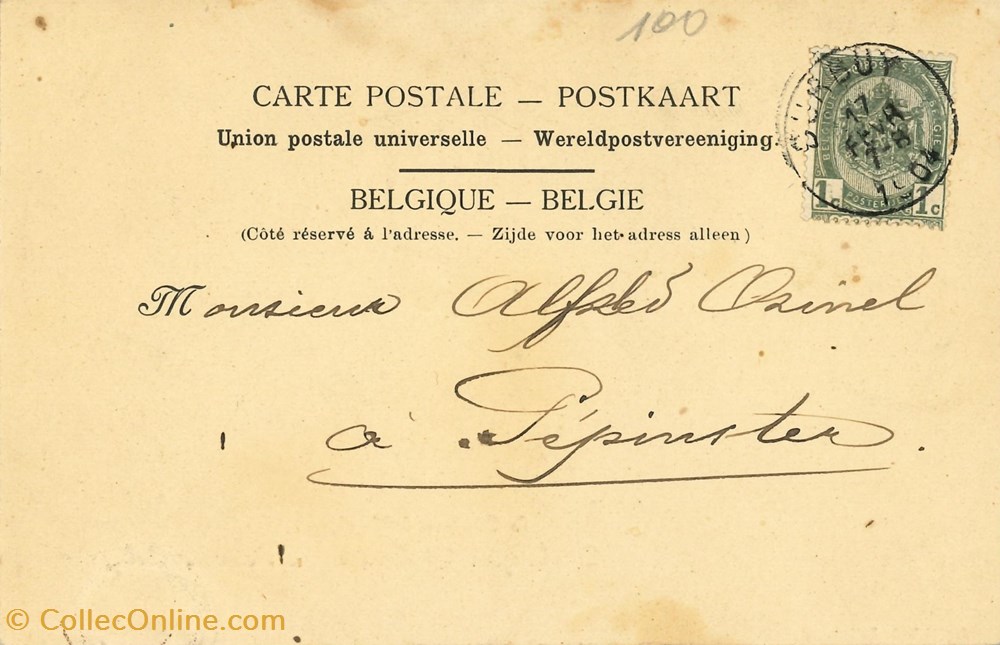 100
CARTE POSTALE — POSTKAART
Union postale universelle — Wereldpostvereeniging.
BELGIQUE — BELGIE
(Côté réservé á l'adresse. — Zijde voor het adress alleen)
17
1904
1c 1c
Monsieur Alfred
à Pépinster.
© CollecOnline.com